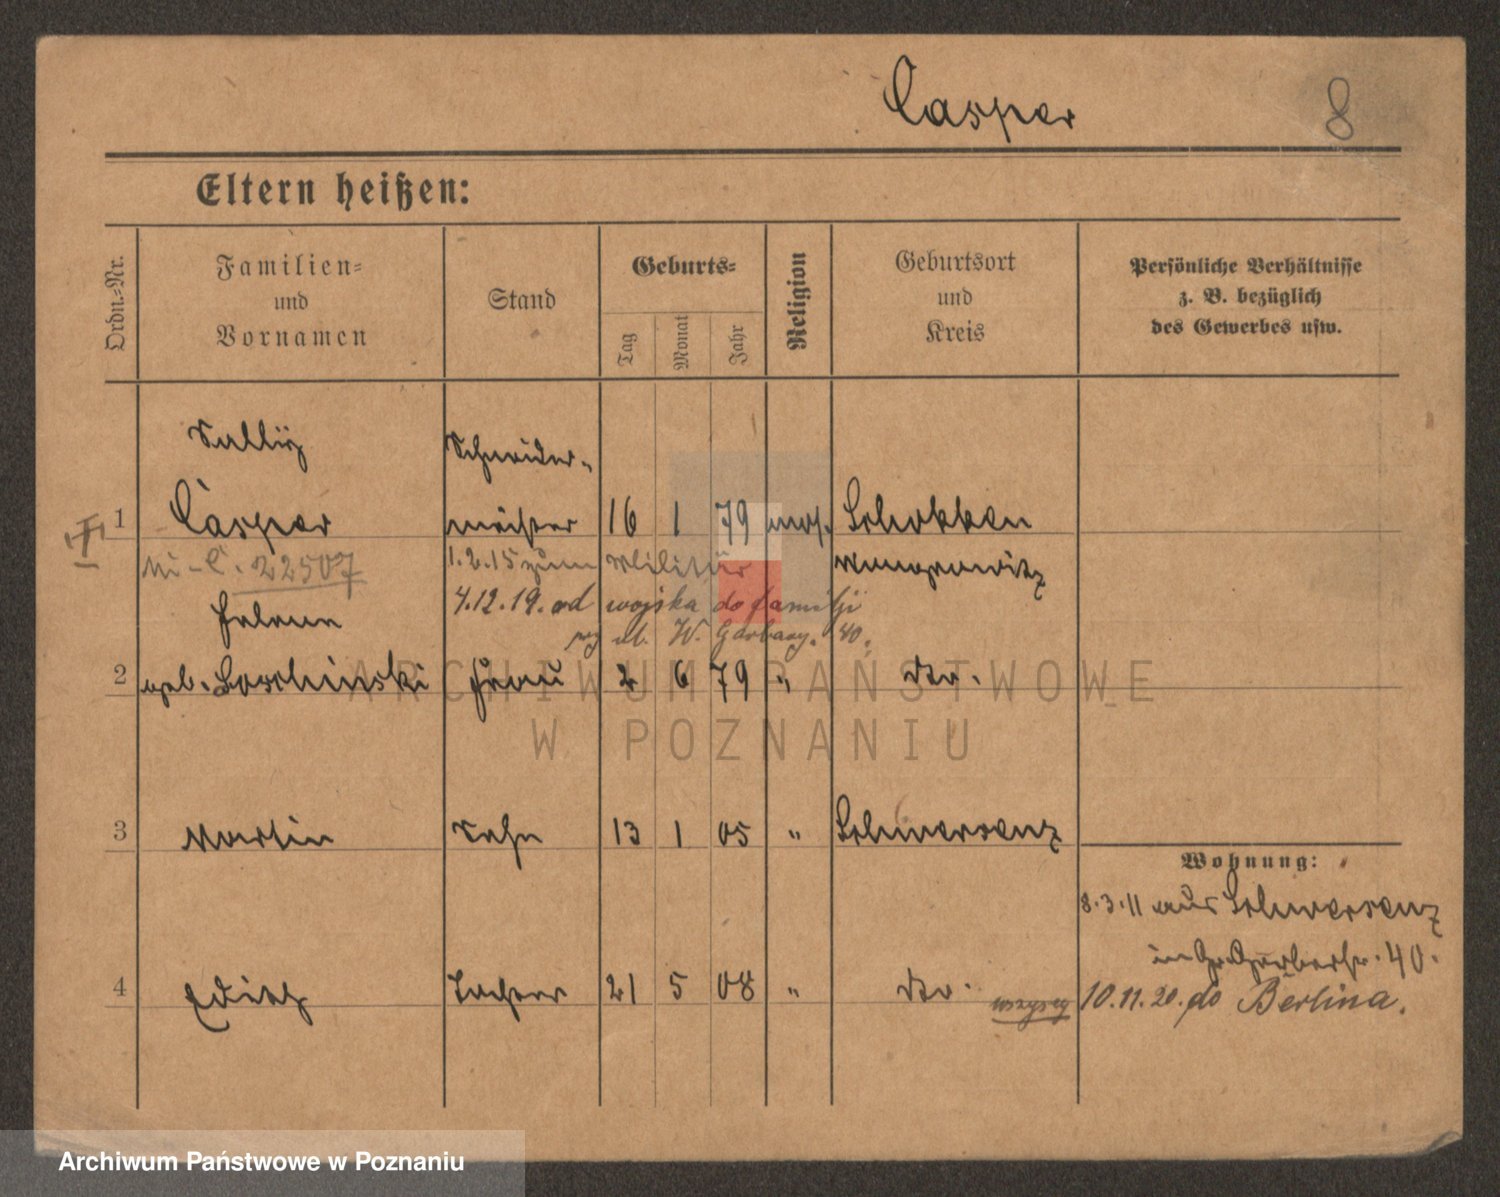 Casper
8
Eltern heißen:
Ordn.-Nr.
Familien-
und
Vornamen
Stand
Geburts-
Tag
Monat
Jahr
Religion
Geburtsort
und
Kreis
Persönliche Verhältnisse
z. B. bezüglich
des Gewerbes usw.
Sally Schneider-
1 Casper meister 16 1 79 mos. Schokken
22507 1.2.15 zum Militär Wongrowitz
4.12.19. od wojska do familji
Helene ul. W. Garbary. 40.
2 geb. Loschinski Frau 2 6 79 " Do.
ARCHIWUM PAŃSTWOWE
W POZNANIU
3 Martin Sohn 13 1 05 " Schwersenz
Wohnung:
8.3.11 aus Schwersenz
in Gr. Gerberstr. 40.
4 Edith Tochter 21 5 08 " Do.
10.11.20. do Berlina.
Archiwum Państwowe w Poznaniu